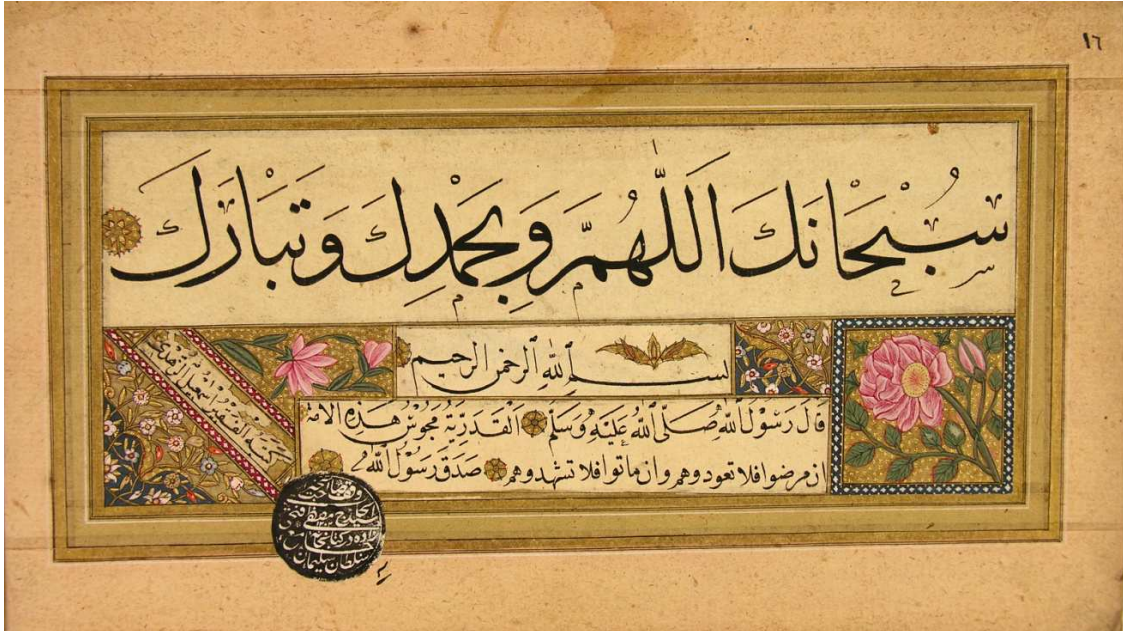 ١٦
سُبْحَانَكَ اَللّٰهُمَّ وَبِحَمْدِكَ وَتَبَارَكَ
بسم الله الرحمن الرحيم
قَالَ رَسُوْلُ اللّٰهِ صَلَّى اللّٰهُ عَلَيْهِ وَسَلَّمَ اَلْقَدَرِيَّةُ مَجُوْسُ هٰذِهِ الامة
ان مرضوا فلا تعودوهم وان ماتوا فلا تشهدوهم صَدَقَ رَسُوْلُ اللّٰهِ
كتبه الفقير اسمعيل الزهدى
سلطان سليمان